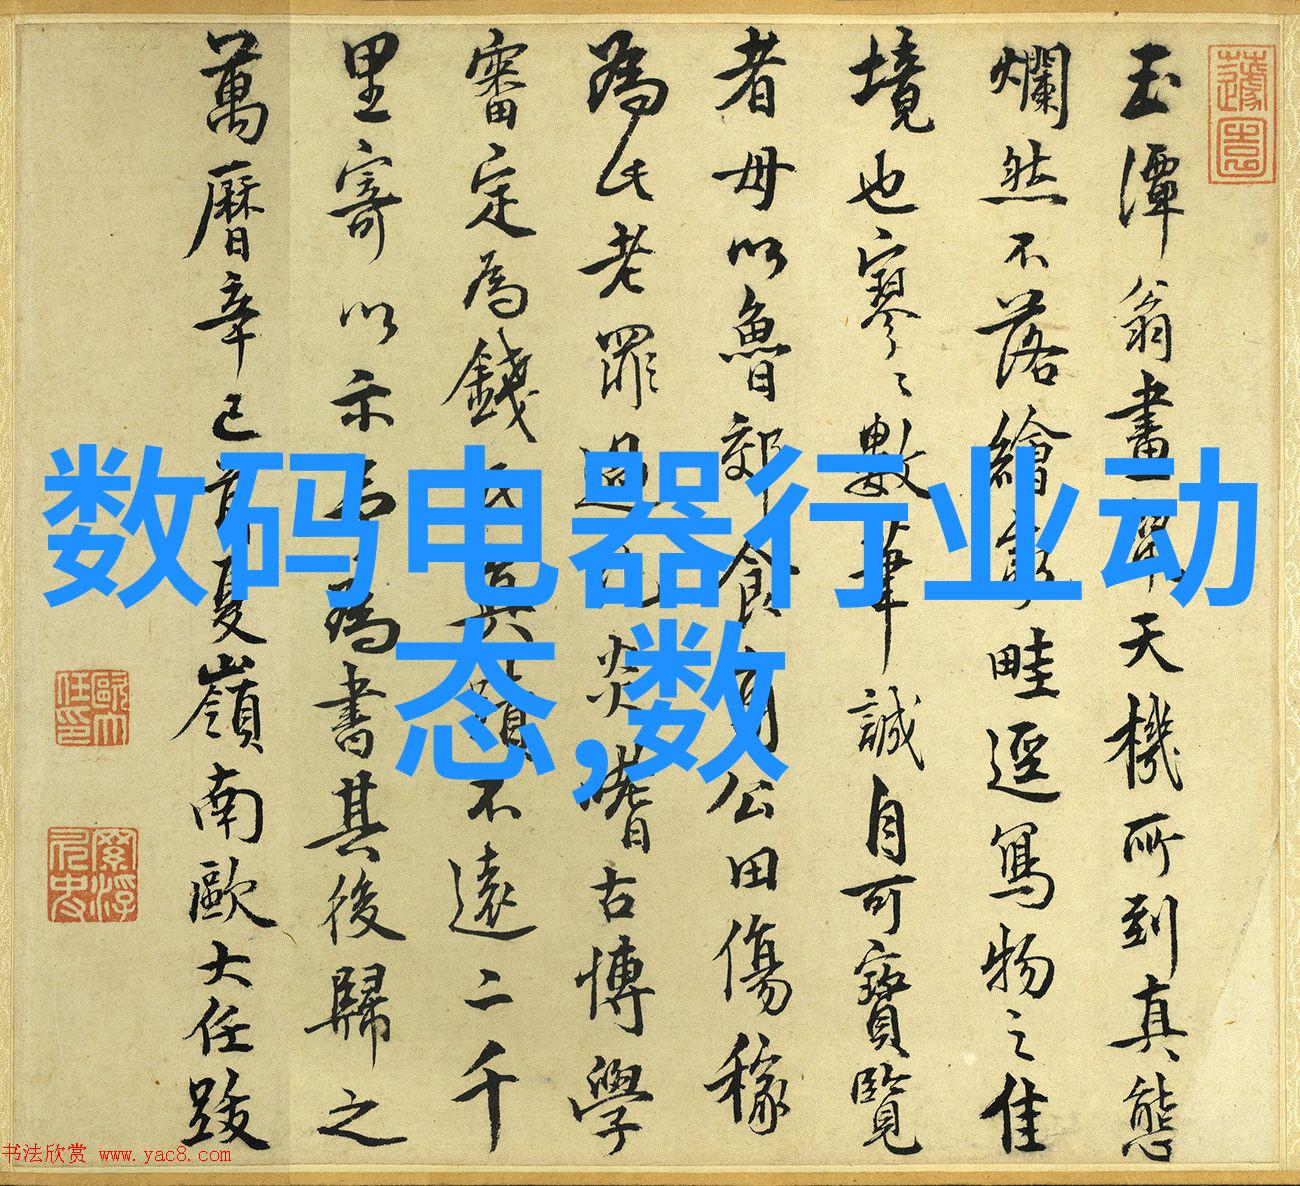 玉潭翁畫單天機所到真態
爛然不落繪畦逕寫物之佳
境也寥〻數筆誠自可寶覽
者毋以魯郊食公田傷稼
為氏老罪過炎嗜古博學
審定為錢氏真蹟不遠二千
里寄以示為書其後歸之
萬曆辛巳首夏嶺南歐大任跋
數码电器行业动
态,数
歐大任印
书法欣赏 www.yac8.com